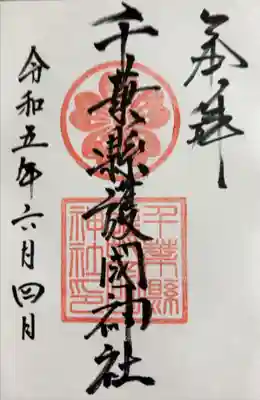 奉拝
千葉縣護國神社
千葉縣
護國
神社印
令和五年六月四日